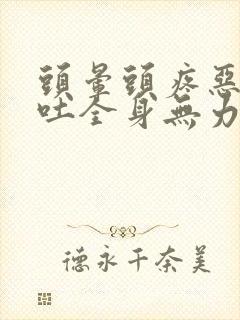 頭暈頭疼惡
吐全身無力
德永千奈美